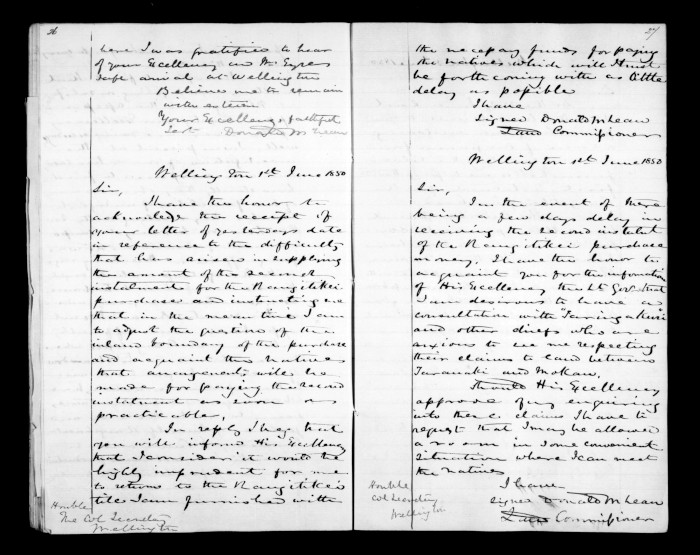 26
here I was gratified to hear
of your Excellency and Mr Eyres
safe arrival at Wellington
Believe me to remain
with esteem
Your Excellencys faithful
Sert. Donald McLean
Wellington 1st June 1850
Sir,
I have the honor to
acknowledge the receipt of
your letter of yesterdays date
in reference to the difficulty
that has arisen in supplying
the amount of the second
instalment for the Rangitikei
purchase and instructing me
that in the mean time I am
to adjust the question of the
inland boundary of the purchase
and acquaint the Natives
that arrangements will be
made for paying the second
instalment as soon as
practicable,
In reply I beg that
you will inform His Excellency
that I consider it would be
highly imprudent for me
to return to the Rangitikei
till I am furnished with
Honble
The Col Secretary
Wellington
27
the necessary funds for paying
the natives which will I trust
be forthcoming with as little
delay as possible
I have
Signed Donald McLean
Land Commissioner
Wellington 1st June 1850
Sir,
In the event of there
being a few days delay in
receiving the second instalt
of the Rangitikei purchase
money, I have the honor to
acquaint you for the information
of His Excellency the Lt Govr that
I am desirous to have a
consultation with Taringa Kuri
and other chiefs who are
anxious to see me respecting
their claims to land between
Taranaki and Mokau.
Should His Excellency
approve of my enquiring
into these claims I have to
request that I may be allowed
a room in some convenient
situation where I can meet
the natives
I have
Signed Donald McLean
Land Commissioner
Honble
Col Secretary
Wellington